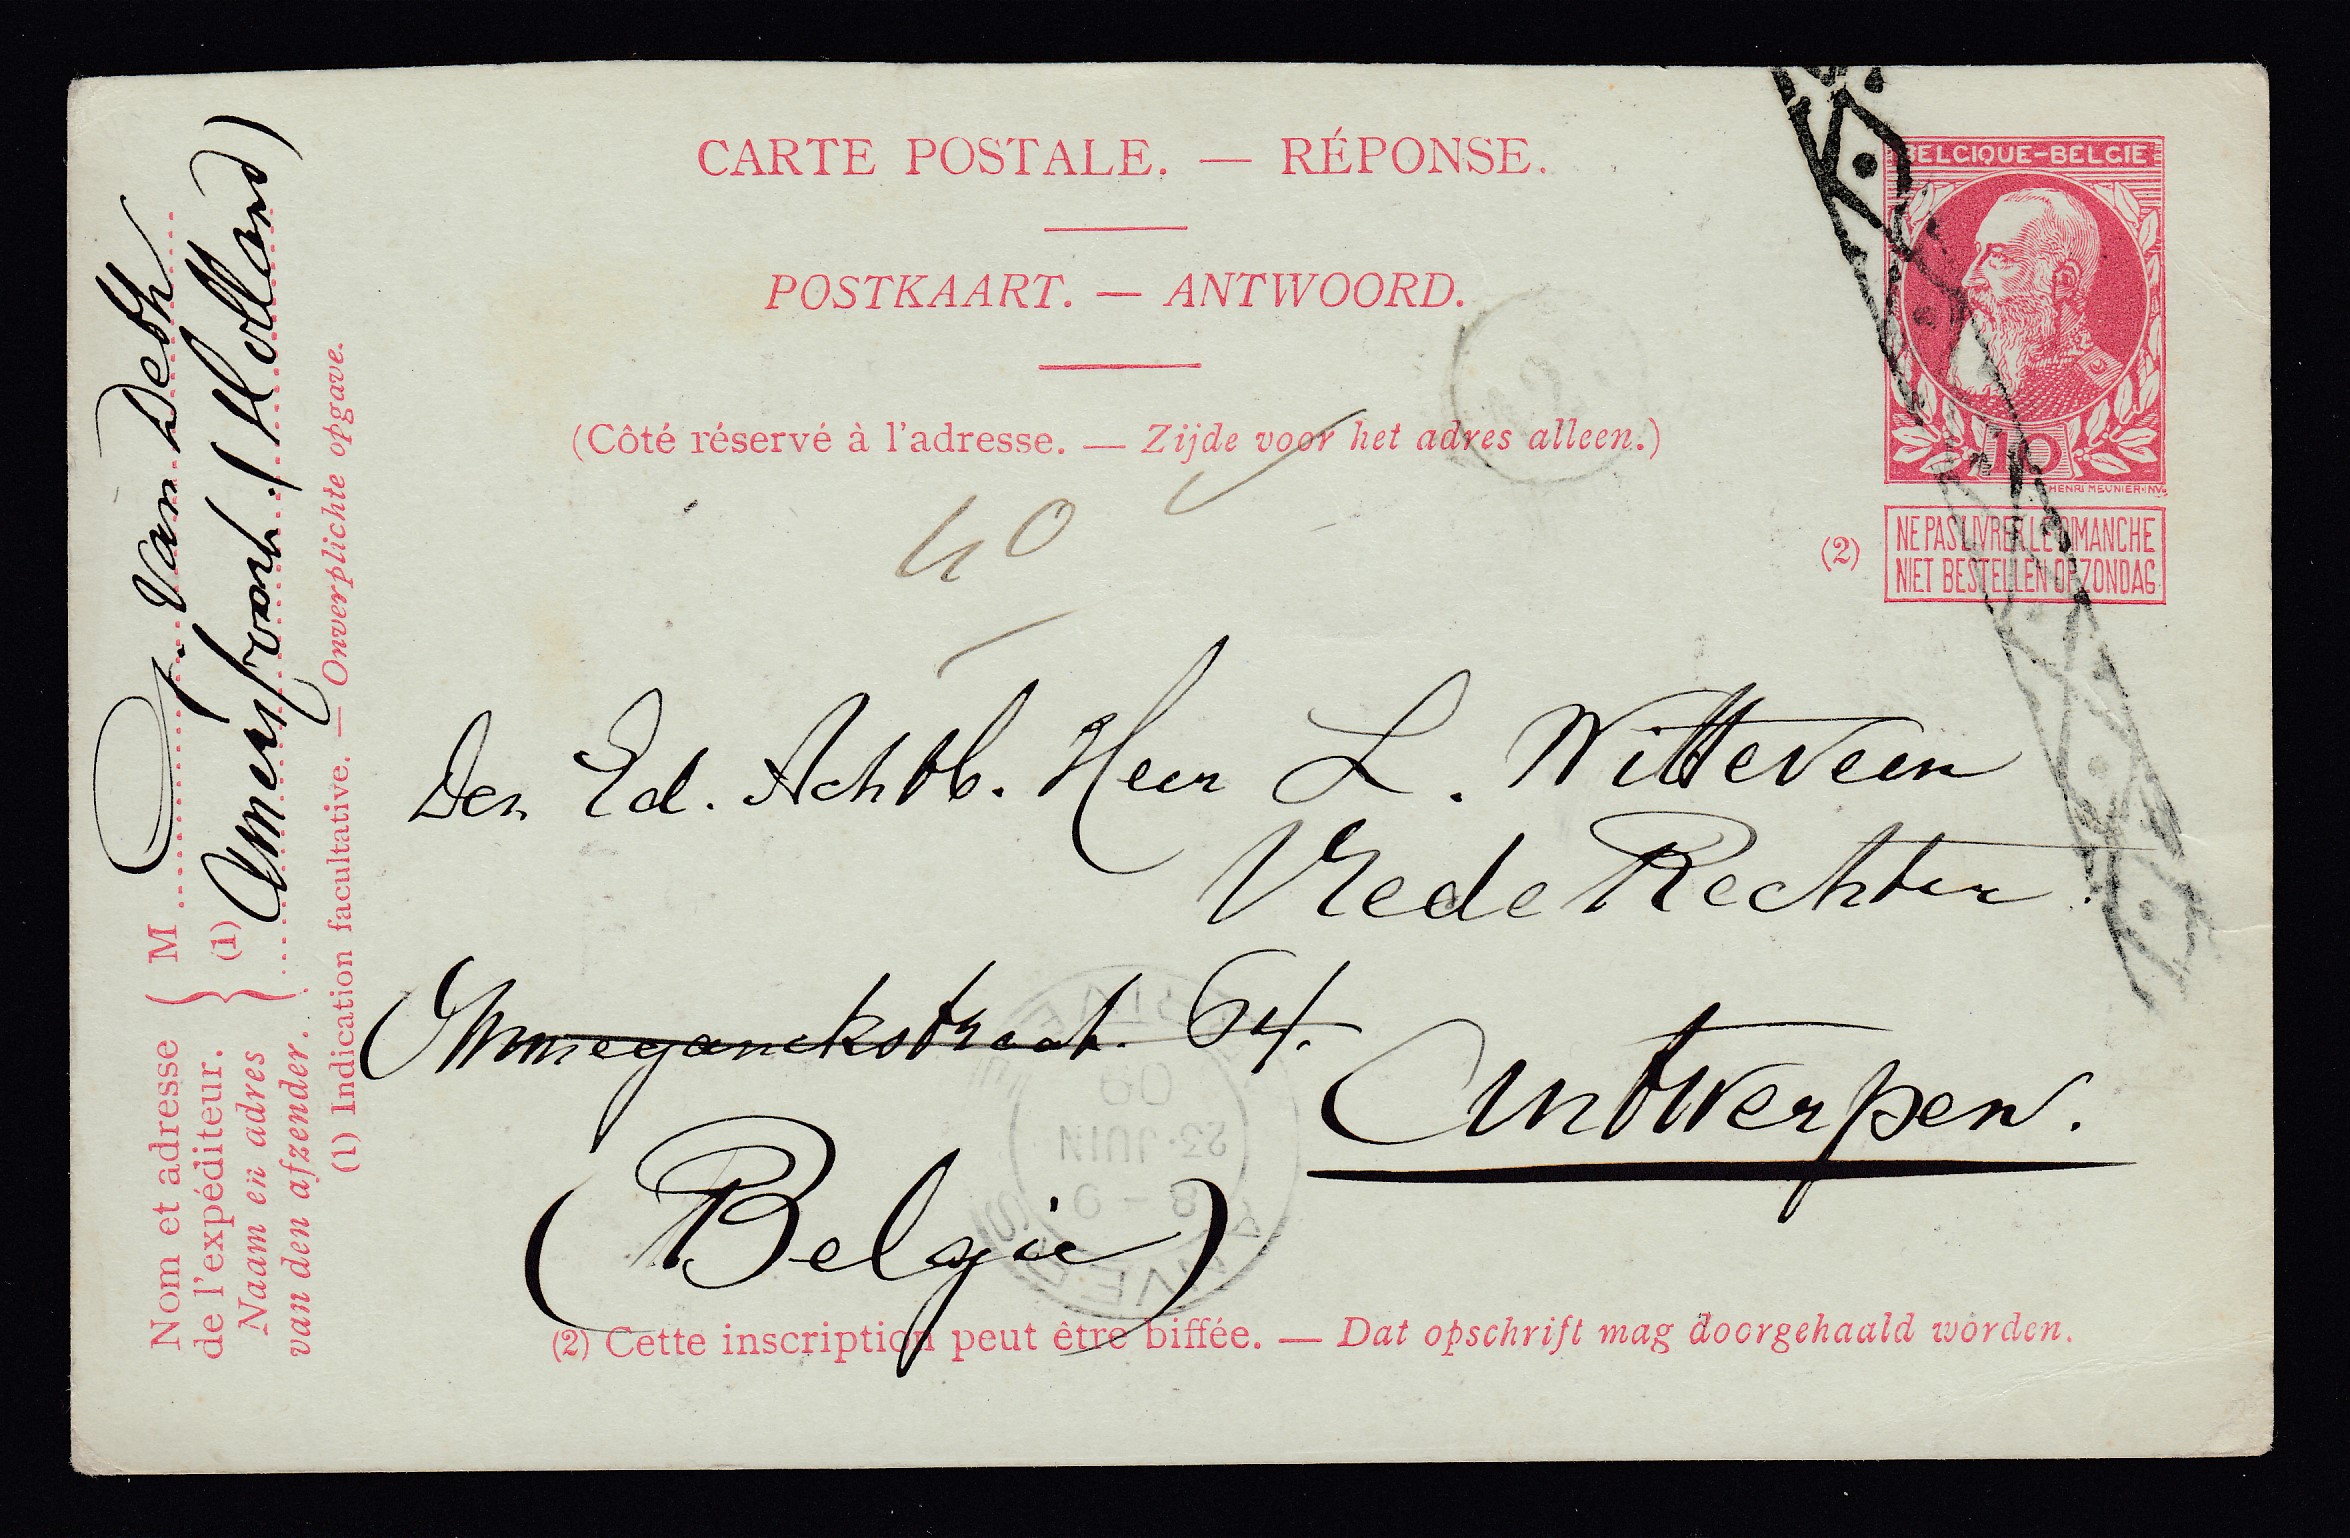 CARTE POSTALE. — RÉPONSE.
POSTKAART. — ANTWOORD.
(Côté réservé à l'adresse. — Zijde voor het adres alleen.)
BELGIQUE-BELGIE
10
HENRI MEUNIER·INV.
(2)
NE PAS LIVRER LE DIMANCHE
NIET BESTELLEN OP ZONDAG
40
Den Ed. Achtb. Heer L. Witteveen
VredeRechter
Ommeganckstraat. 64.
Antwerpen.
(België)
ANVERS
8 - 9
23·JUIN
09
(2) Cette inscription peut être biffée. — Dat opschrift mag doorgehaald worden.
Nom et adresse
de l'expéditeur.
Naam en adres
van den afzender.
M
(1)
J. van Deth
Amersfoort. (Holland)
(1) Indication facultative. — Onverplichte opgave.